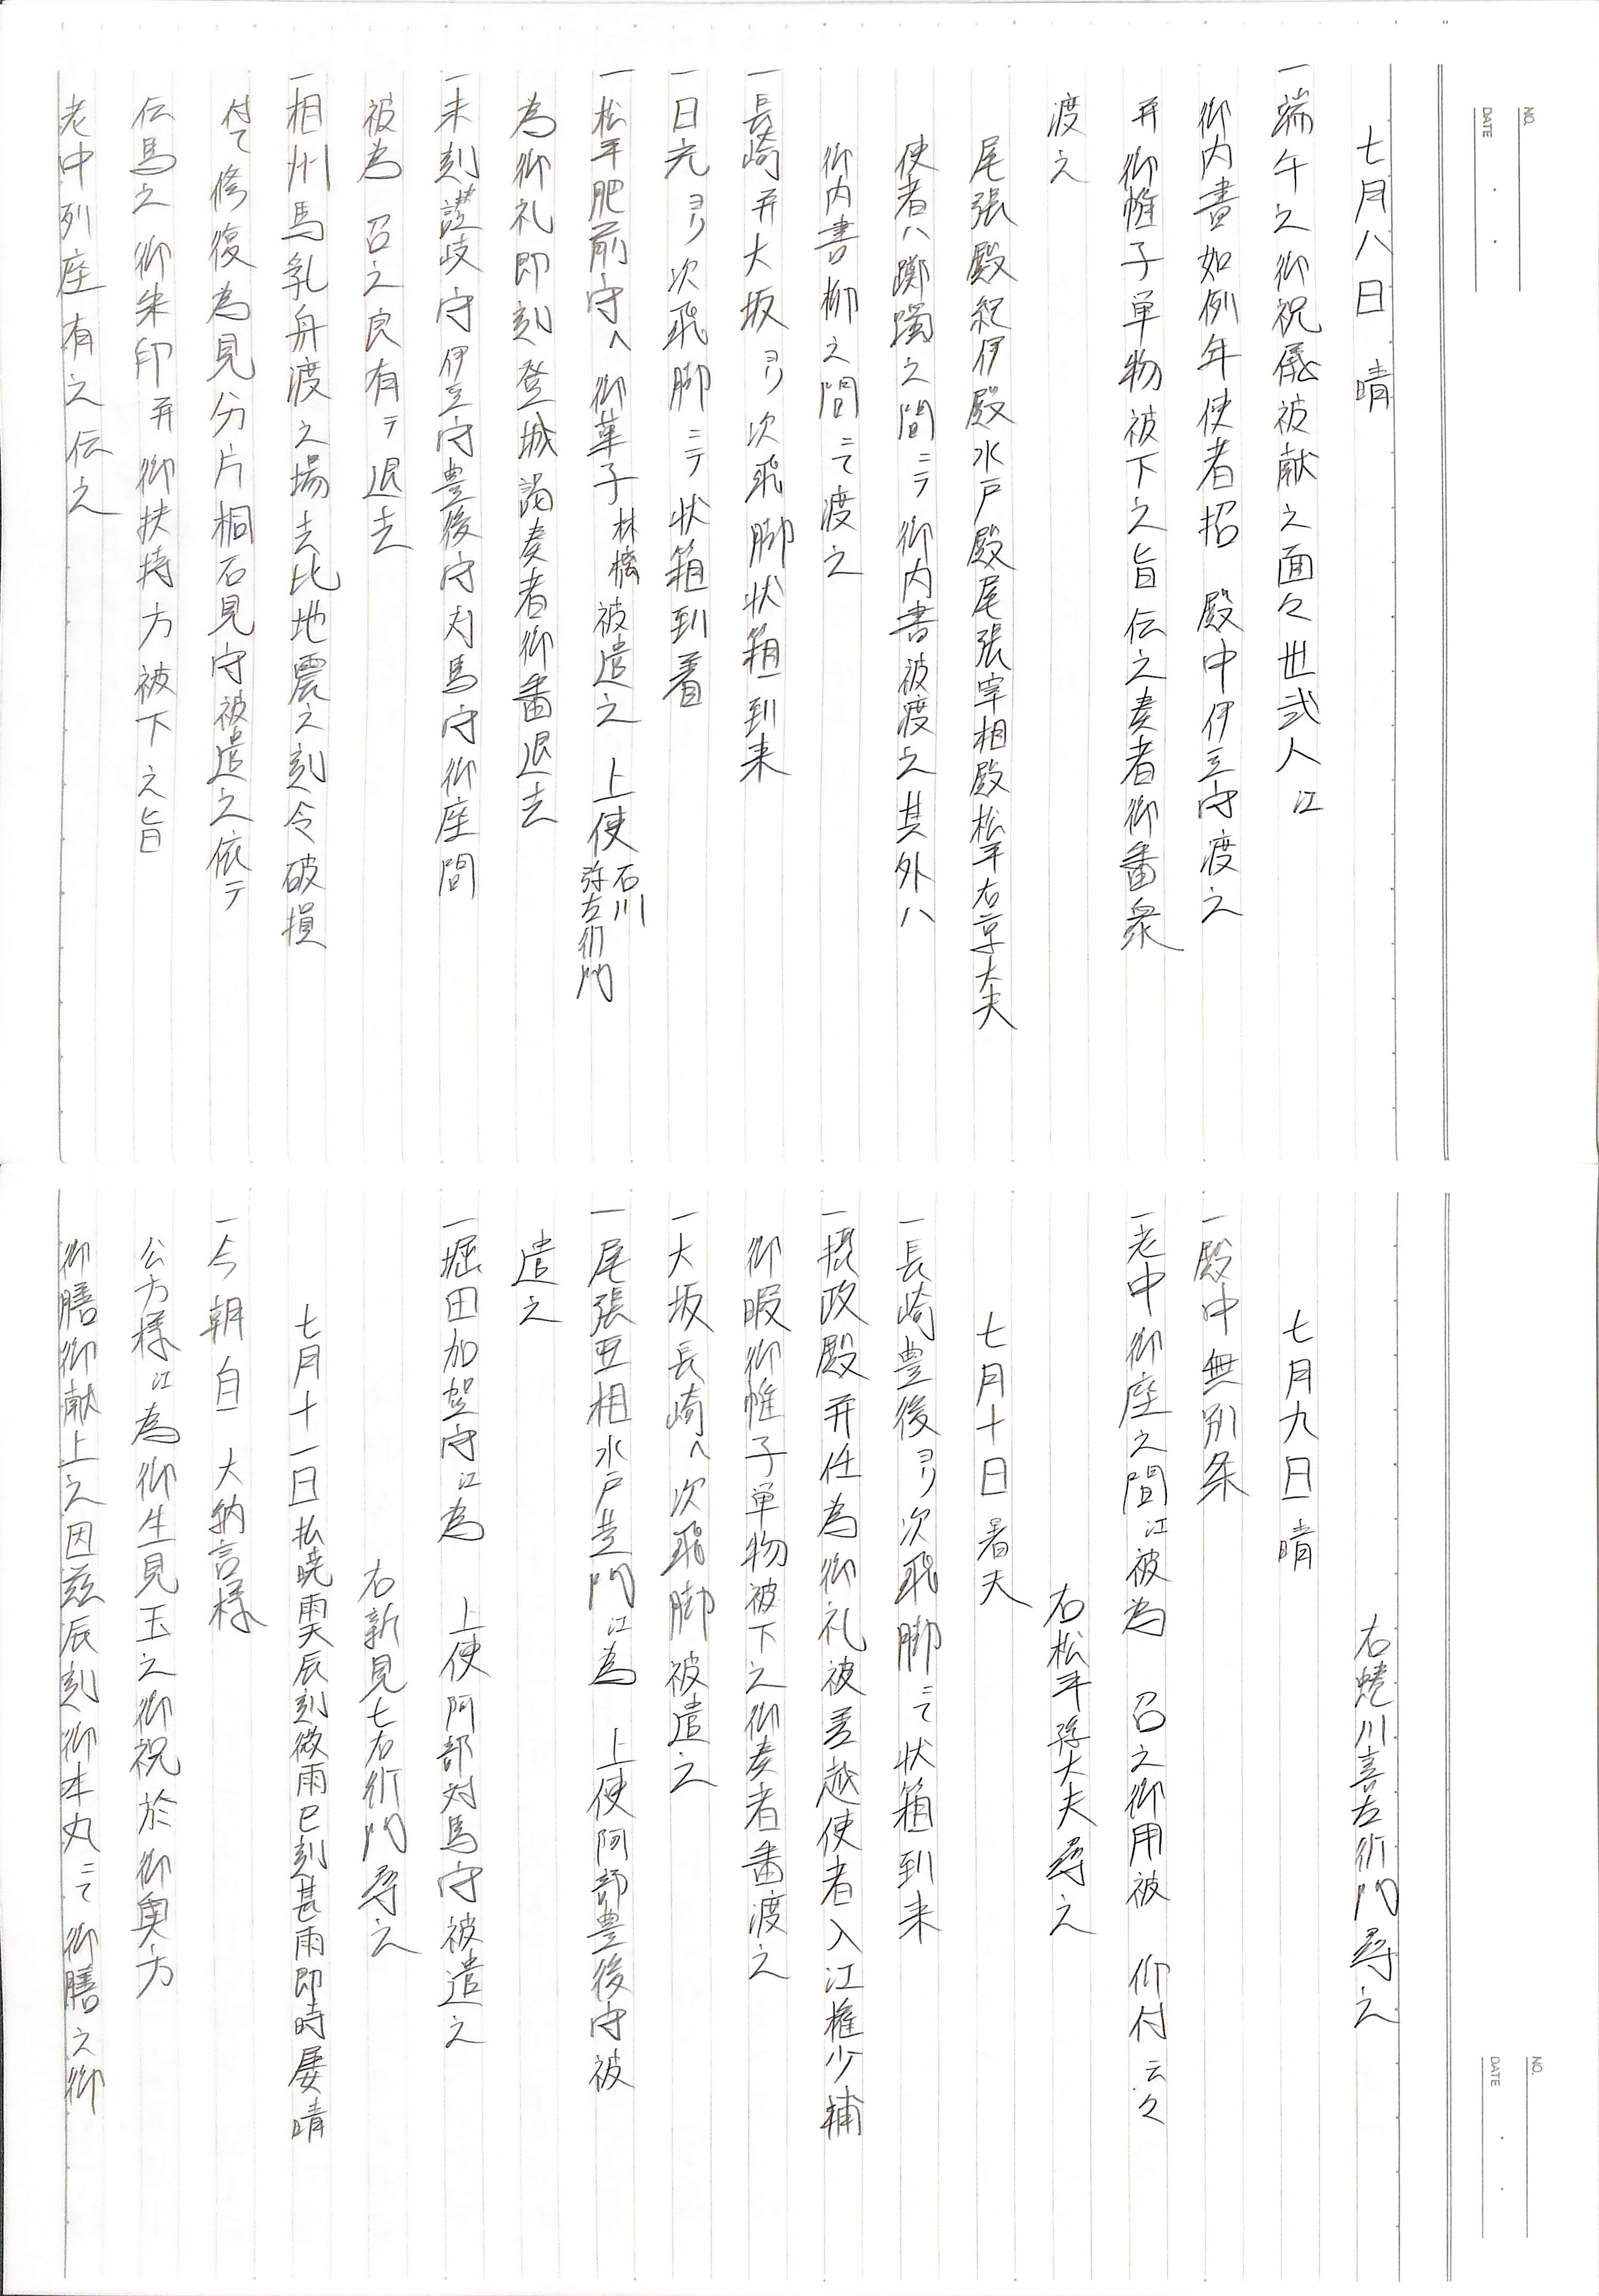 NO.
DATE
七月八日 晴
一端午之御祝儀被献之面々世弐人江
御内書如例年使者招 殿中伊豆守渡之
并御帷子単物被下之旨伝之奏者御番衆
渡之
尾張殿紀伊殿水戸殿尾張宰相殿松平右京大夫
使者ハ躑躅之間ニテ御内書被渡之其外ハ
御内書柳之間ニて渡之
一長崎并大坂ヨリ次飛脚状箱到来
一日光ヨリ次飛脚ニテ状箱到着
一松平肥前守へ御菓子林檎被遣之 上使石川弥左衛門
為御礼即刻登城謁奏者御番退去
一未刻讃岐守伊豆守豊後守対馬守御座間
被為 召之良有テ退去
一相州馬乳舟渡之場去比地震之刻令破損
付て修復為見分片桐石見守被遣之依テ
伝馬之御朱印并御扶持方被下之旨
老中列座有之伝之
NO.
DATE
右蜷川喜左衛門尋之
七月九日 晴
一殿中無別条
一老中御座之間江被為 召之御用被 仰付云々
右松平孫大夫尋之
七月十日 暑天
一長崎豊後ヨリ次飛脚ニて状箱到来
一摂政殿并任為御礼被差越使者入江権少輔
御暇御帷子単物被下之御奏者番渡之
一大坂長崎へ次飛脚被遣之
一尾張亜相水戸黄門江為 上使阿部豊後守被
遣之
一堀田加賀守江為 上使阿部対馬守被遣之
右新見七右衛門尋之
七月十一日払暁雲天辰刻微雨巳刻甚雨即時屡晴
一今朝自 大納言様
公方様江為御生見玉之御祝於御奥方
御膳御献上之因茲辰刻御本丸ニて御膳之御